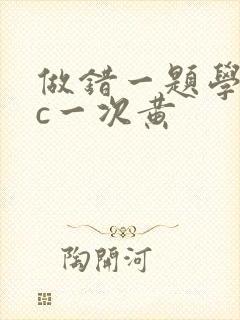 做錯一題學
c一次黃
陶開河